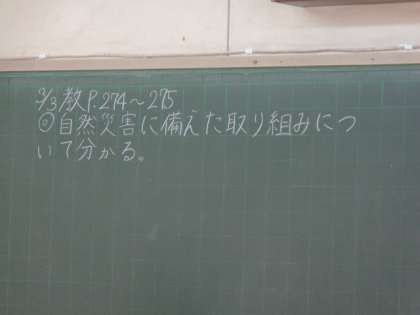 3/3 教P.274～275
◎自然災害に備えた取り組みにつ
いて分かる。